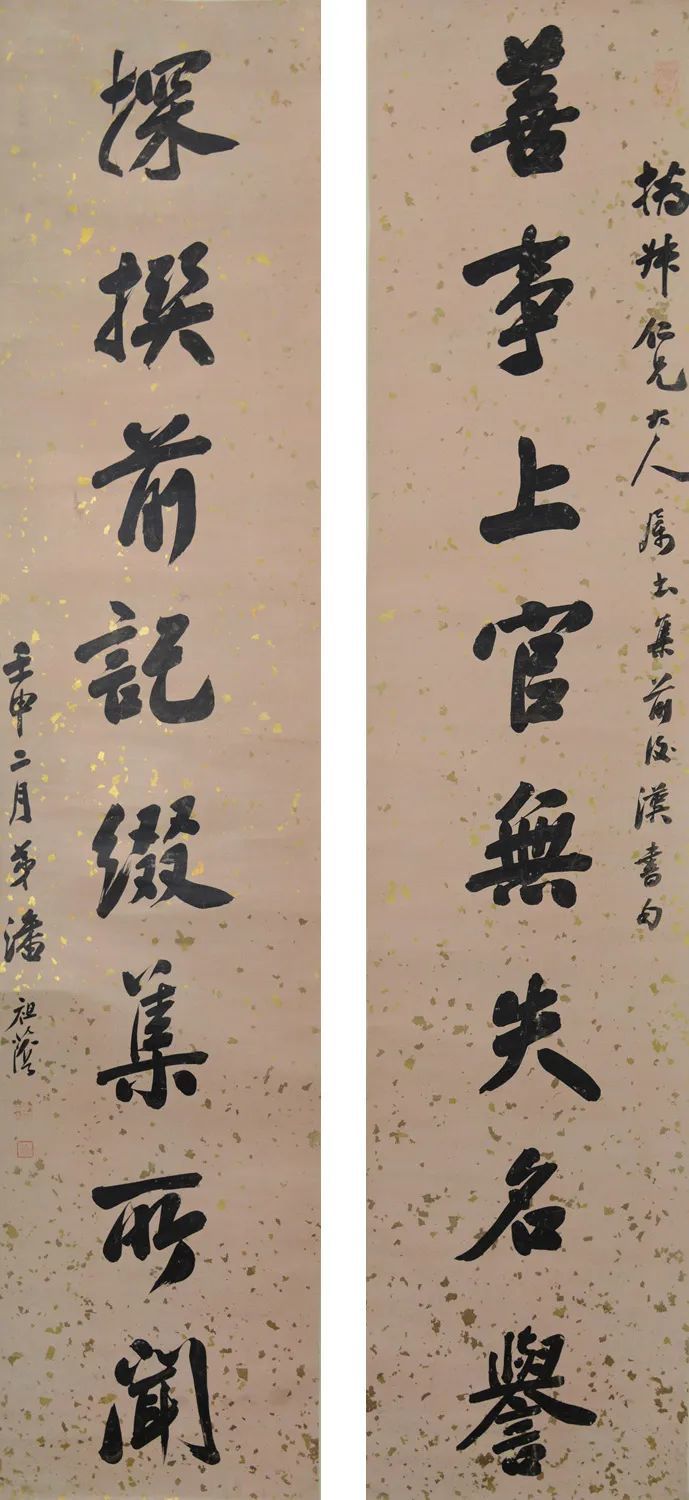 撝叔仁兄大人属書集前後漢書句
善事上官無失名譽
探撰前記綴集所聞
壬申二月弟潘祖蔭